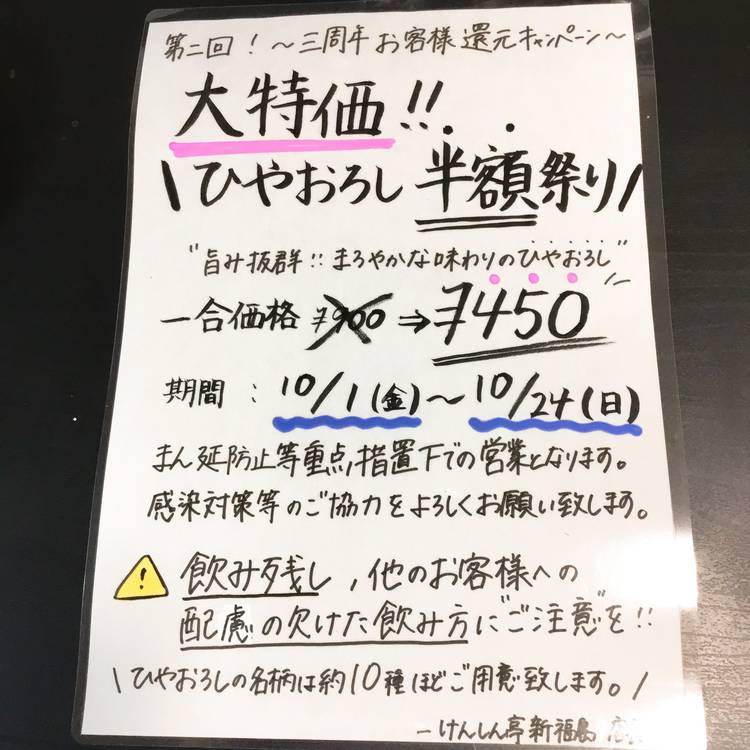 第二回！～三周年お客様還元キャンペーン～
大特価!!
\ひやおろし半額祭り/
"旨み抜群!!まろやかな味わりのひやおろし"
一合価格 ¥900⇒¥450
期間：10/1(金)～10/24(日)
まん延防止等重点措置下での営業となります。
感染対策等のご協力をよろしくお願い致します。
飲み残し,他のお客様への
配慮の欠けた飲み方に"ご注意"を!!
\ひやおろしの名柄は約10種ほどご用意致します。/
ーけんしん亭新福島